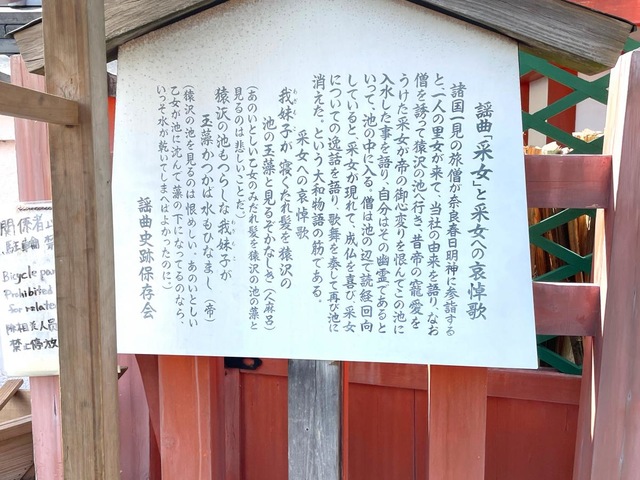 謡曲「采女」と采女への哀悼歌
諸国一見の旅僧が奈良春日明神に参詣する
と一人の里女が来て、当社の由来を語り、なお
僧を誘って猿沢の池へ行き、昔帝の寵愛を
うけた采女が帝の御心変りを恨んでこの池に
入水した事を語り、自分はその幽霊であると
いって、池の中に入る。僧は池の辺で読経回向
していると、采女が現れて、成仏を喜び、采女
についての逸話を語り、歌舞を奏して再び池に
消えた、という大和物語の筋である。
采女への哀悼歌
我妹子が寝くたれ髪を猿沢の
池の玉藻と見るぞかなしき（人麻呂）
（あのいとしい乙女のみだれ髪を猿沢の池の藻と
見るのは悲しいことだ）
猿沢の池もつらしな我妹子が
玉藻かつかば水もひなまし（帝）
（猿沢の池を見るのは恨めしい、あのいとしい
乙女が池に沈んで藻の下になってるのなら、
いっそ水が乾いてしまへばよかったのに）
謡曲史跡保存会
関係者
駐輪
Bicycle
Prohibited
for
禁止停放